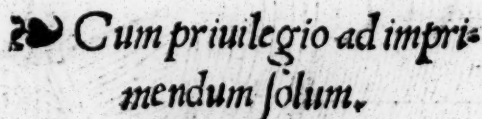 ❧ Cum priuilegio ad impri-
mendum ſolum.